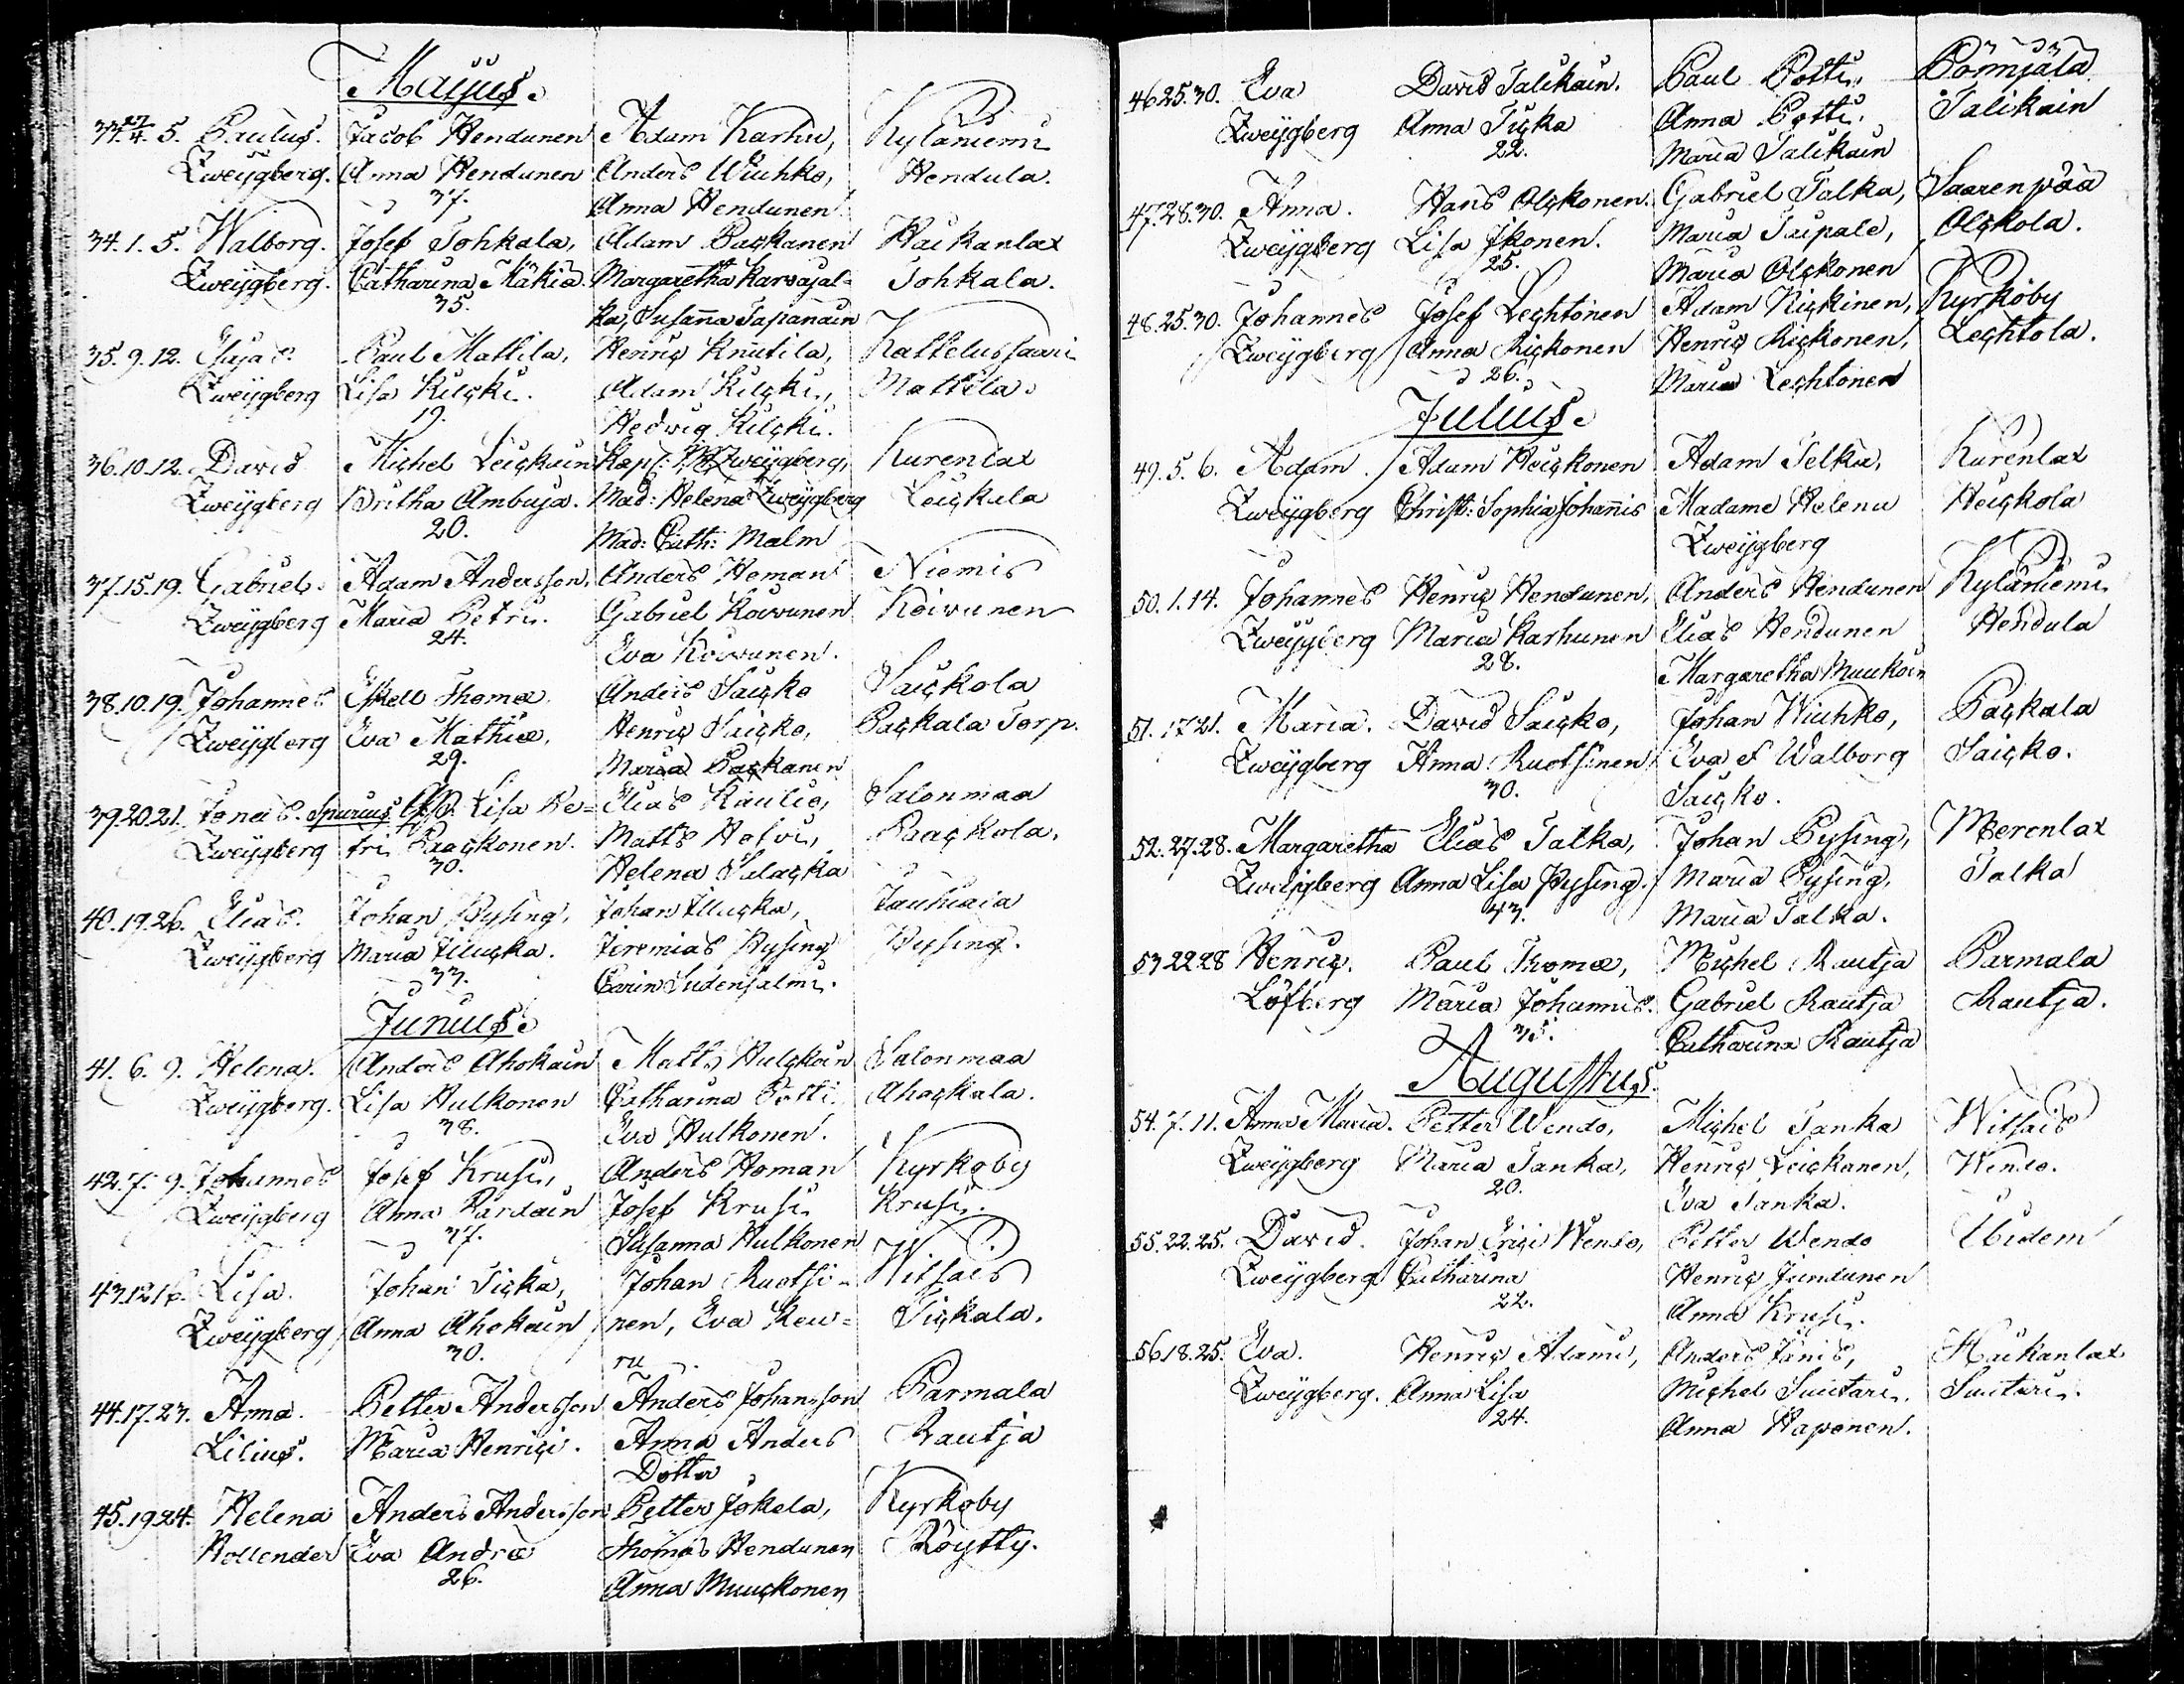 Majus.
33. 27/4. 5. Paulus. Jacob Hendunen Adam Karhu, Kylaniemi
Zweygberg. Anna Hendunen Anders Wiuhko, Hendula.
37. Anna Hendunen
34. 1. 5. Walborg. Josef Tohkala, Adam Packanen Haikanlax
Zweygberg. Catharina Mäkiä. Margaretha Karvajal= Tohkala.
35. ka, Susanna Tapanain
35. 9. 12. Esajas Paul Mattila, Henric Knutila, Kattelussaari
Zweygberg Lisa Kilcki. Adam Kilcki, Mattila.
19. Hedwig Kilcki.
36. 10. 12. David Michel Leickain Zweygberg, Kurenlax
Zweygberg Britha Ambuja. Mad: Helena Zweygberg Leickula
20. Mad: Cath: Malm
37. 15. 19. Gabriel. Adam Andersson, Anders Homan Niemis
Zweygberg Maria Petri. Gabriel Koivunen Koivunen
24. Eva Koivunen.
38. 10. 19. Johannes Eskell Thomæ. Anders Saicko Saickola
Zweygberg Eva Mathiæ, Henric Saicko, Packala Torp.
29. Maria Packanen
39. 20. 21. Jonas. Spurius Lisa Pe= Elias Raulio, Salonmaa
Zweygberg tri Paackonen. Matts Hotvi, Paackola.
30. Helena Salacka
40. 19. 26. Elias. Johan Pysing, Johan Illucka, Jauhiaia
Zweygberg Maria Illucka. Jeremias Pysing Pysing.
33. Carin Sudensalmi.
Junius.
41. 6. 9. Helena. Anders Ahokain Matts Hulckoin Salonmaa
Zweygberg. Lisa Hulkonen Catharina Potti Ahockala.
38. Eva Hulkonen.
42. 7. 9. Johannes Josef Krusi, Anders Homan Kyrkoby
Zweygberg Anna Pardain Josef Krusi Krusi.
37. Susanna Hulkonen
43. 12. 16. Lisa. Johan Ticka, Johan Ruotsi= Witsais
Zweygberg Anna Ahokain nen, Eva Keu= Tickala.
30. ru
44. 17. 23. Anna. Petter Andersson Anders Johansson Parmala
Lilius. Maria Henrici. Anna Anders Rautja
Dotter
45. 19. 24. Helena Anders Andersson Petter Jokela, Kyrkoby
Hollender Eva Andræ Thomas Hendunen Röytty.
26. Anna Muuckonen
46. 25. 30. Eva David Talikain. Paul Potti, Pönnjälä
Zweygberg Anna Ticka Anna Potti. Talikain
22. Maria Talikain
47. 28. 30. Anna. Hans Olckonen. Gabriel Talka, Saarenpää
Zweygberg Lisa Ikonen. Maria Taipale, Olckola.
25. Maria Olckonen
48. 25. 30. Johannes Josef Lechtonen Adam Kickinen, Kyrkoby
Zweygberg Anna Rickonen Henric Rickonen, Lechtola.
26. Maria Lechtonen
Julius.
49. 5. 6. Adam. Adam Heickonen Adam Telka, Kurenlax
Zweygberg Christ: Sophia Johannis Madame Helena Heickola
Zweygberg
50. 1. 14. Johannes Henric Hendunen, Anders Hendunen Kylaniemi
Zweygberg Maria Karhunen Elias Hendunen Hendula
28. Margaretha Muukoin
51. 17. 21. Maria. David Saicko, Johan Wiuhko, Packala
Zweygberg Anna Ruotsinen Eva & Walborg Saicko.
30. Saicko.
52. 27. 28. Margaretha Elias Talka, Johan Pysing, Merenlax
Zweygberg Anna Lisa Pysing. Maria Pysing, Talka
43. Maria Talka.
53. 22. 28. Henric. Paul Thomæ, Michel Rautja Parmala
Löfberg Maria Johannis. Gabriel Rautja Rautja.
35. Catharina Rautja
Augustus.
54. 7. 11. Anna Maria. Petter Wendo, Michel Tanka Witsais
Zweygberg Maria Tanka, Henric Leickanen, Wendo.
20. Eva Tanka.
55. 22. 25. David. Johan Erici Wendo, Petter Wendo Ibidem
Zweygberg Catharina Henric Jundunen
22. Anna Krusi.
56. 18. 25. Eva. Henric Adami, Anders Jänis, Haikanlax
Zweygberg. Anna Lisa Michel Suutari. Suutari.
24. Anna Haponen.